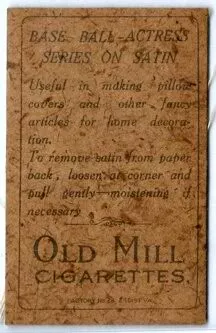 BASE BALL-ACTRESS
SERIES ON SATIN
Useful in making pillow
covers and other fancy
articles for home decora-
tion.
To remove satin from paper
back, loosen at corner and
pull gently—moistening if
necessary
OLD MILL
CIGARETTES.
FACTORY